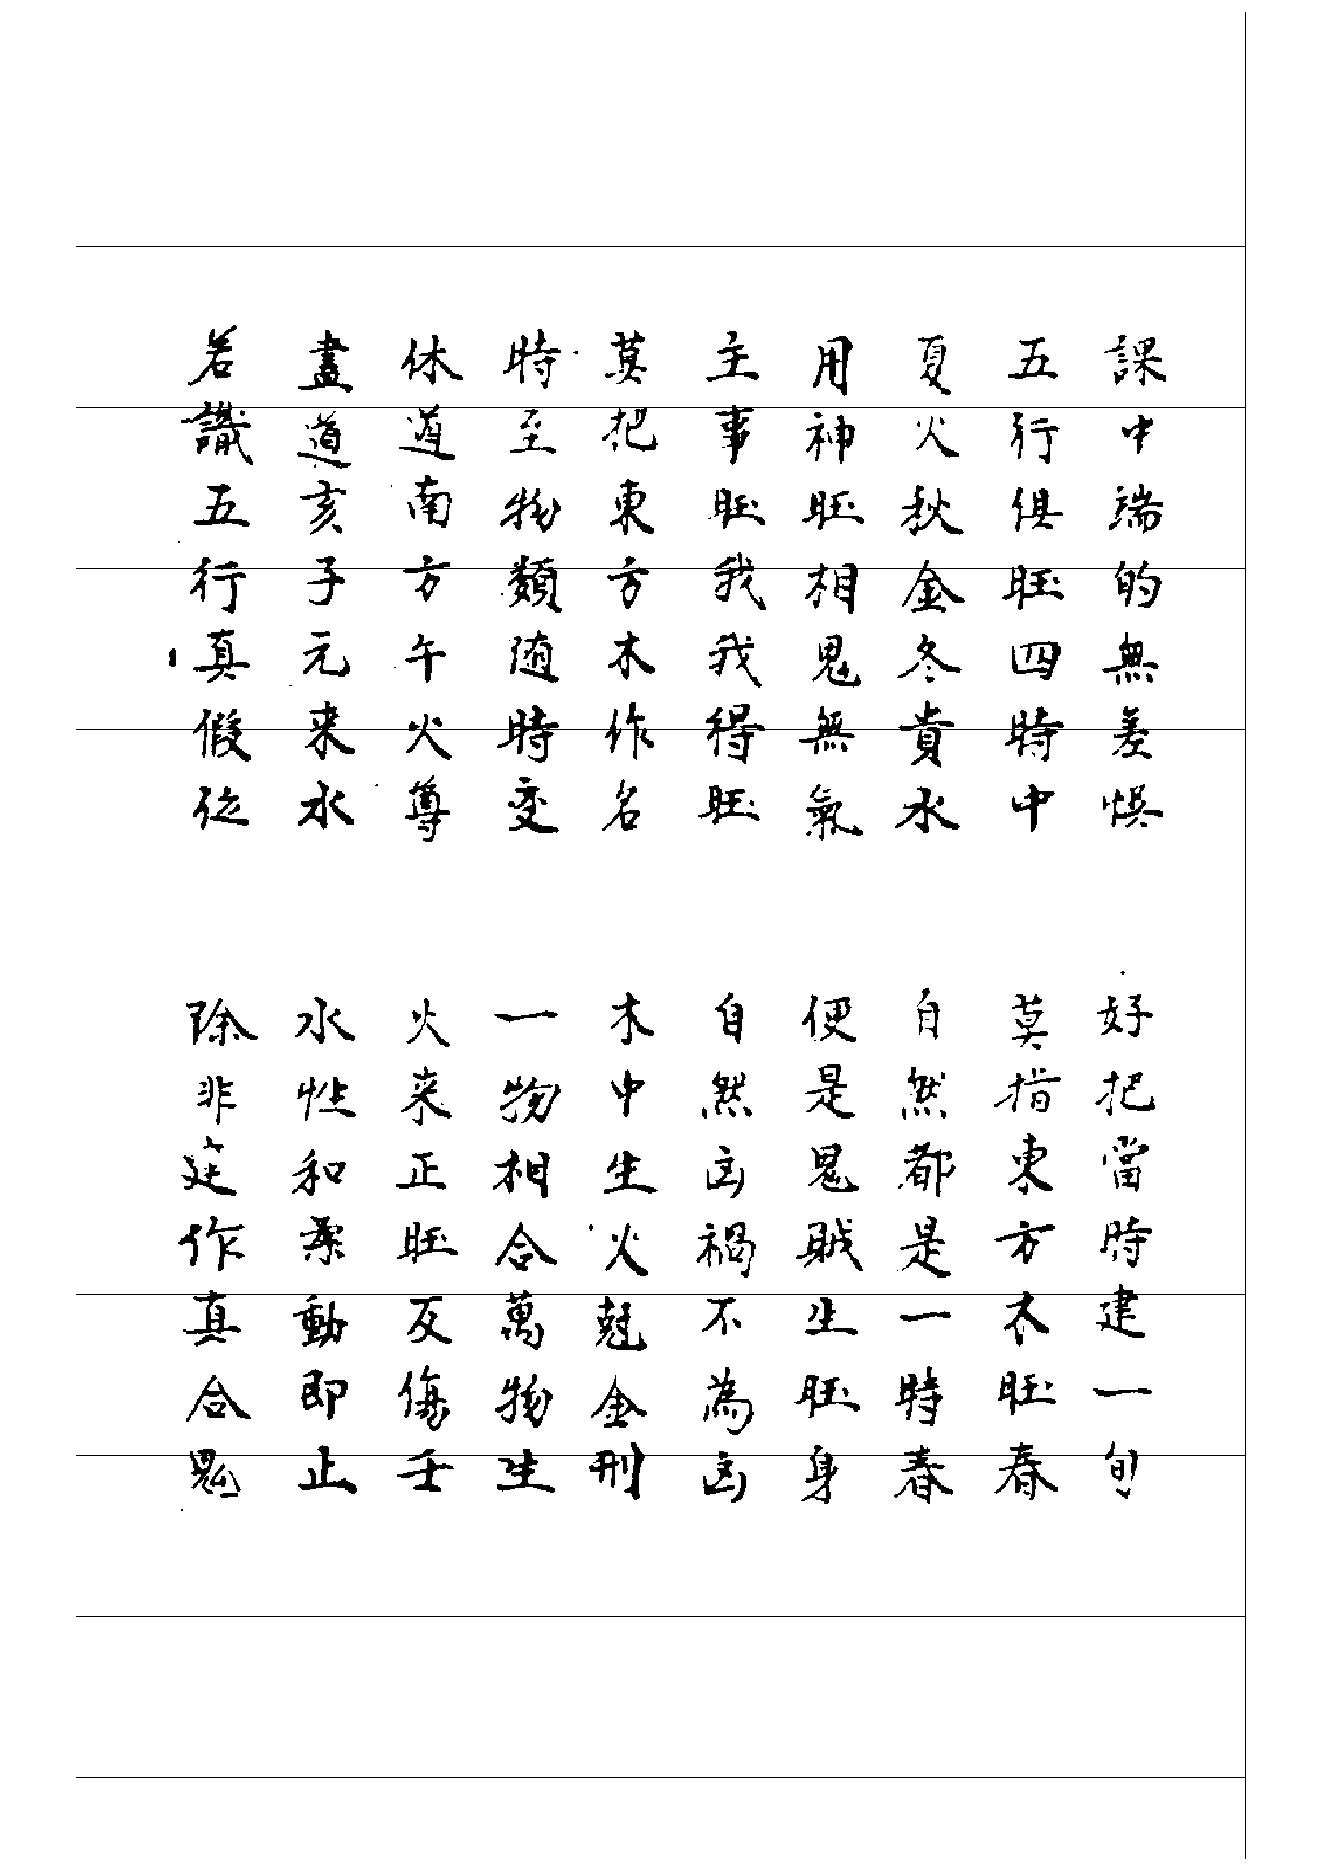 課中端的無差悞 好把當時建一旬
五行俱旺四時中 莫指東方木旺春
夏火秋金冬貴水 自然都是一時春
用神旺相鬼無氣 便是鬼賊生旺身
主事旺我我得旺 自然凶禍不為凶
莫把東方木作名 木中生火尅金刑
時至物類随時变 一物相合萬物生
休道南方午火尊 火来正旺反傷壬
盡道亥子元来水 水性和柔動即止
若識五行真假位 除非作真合鬼